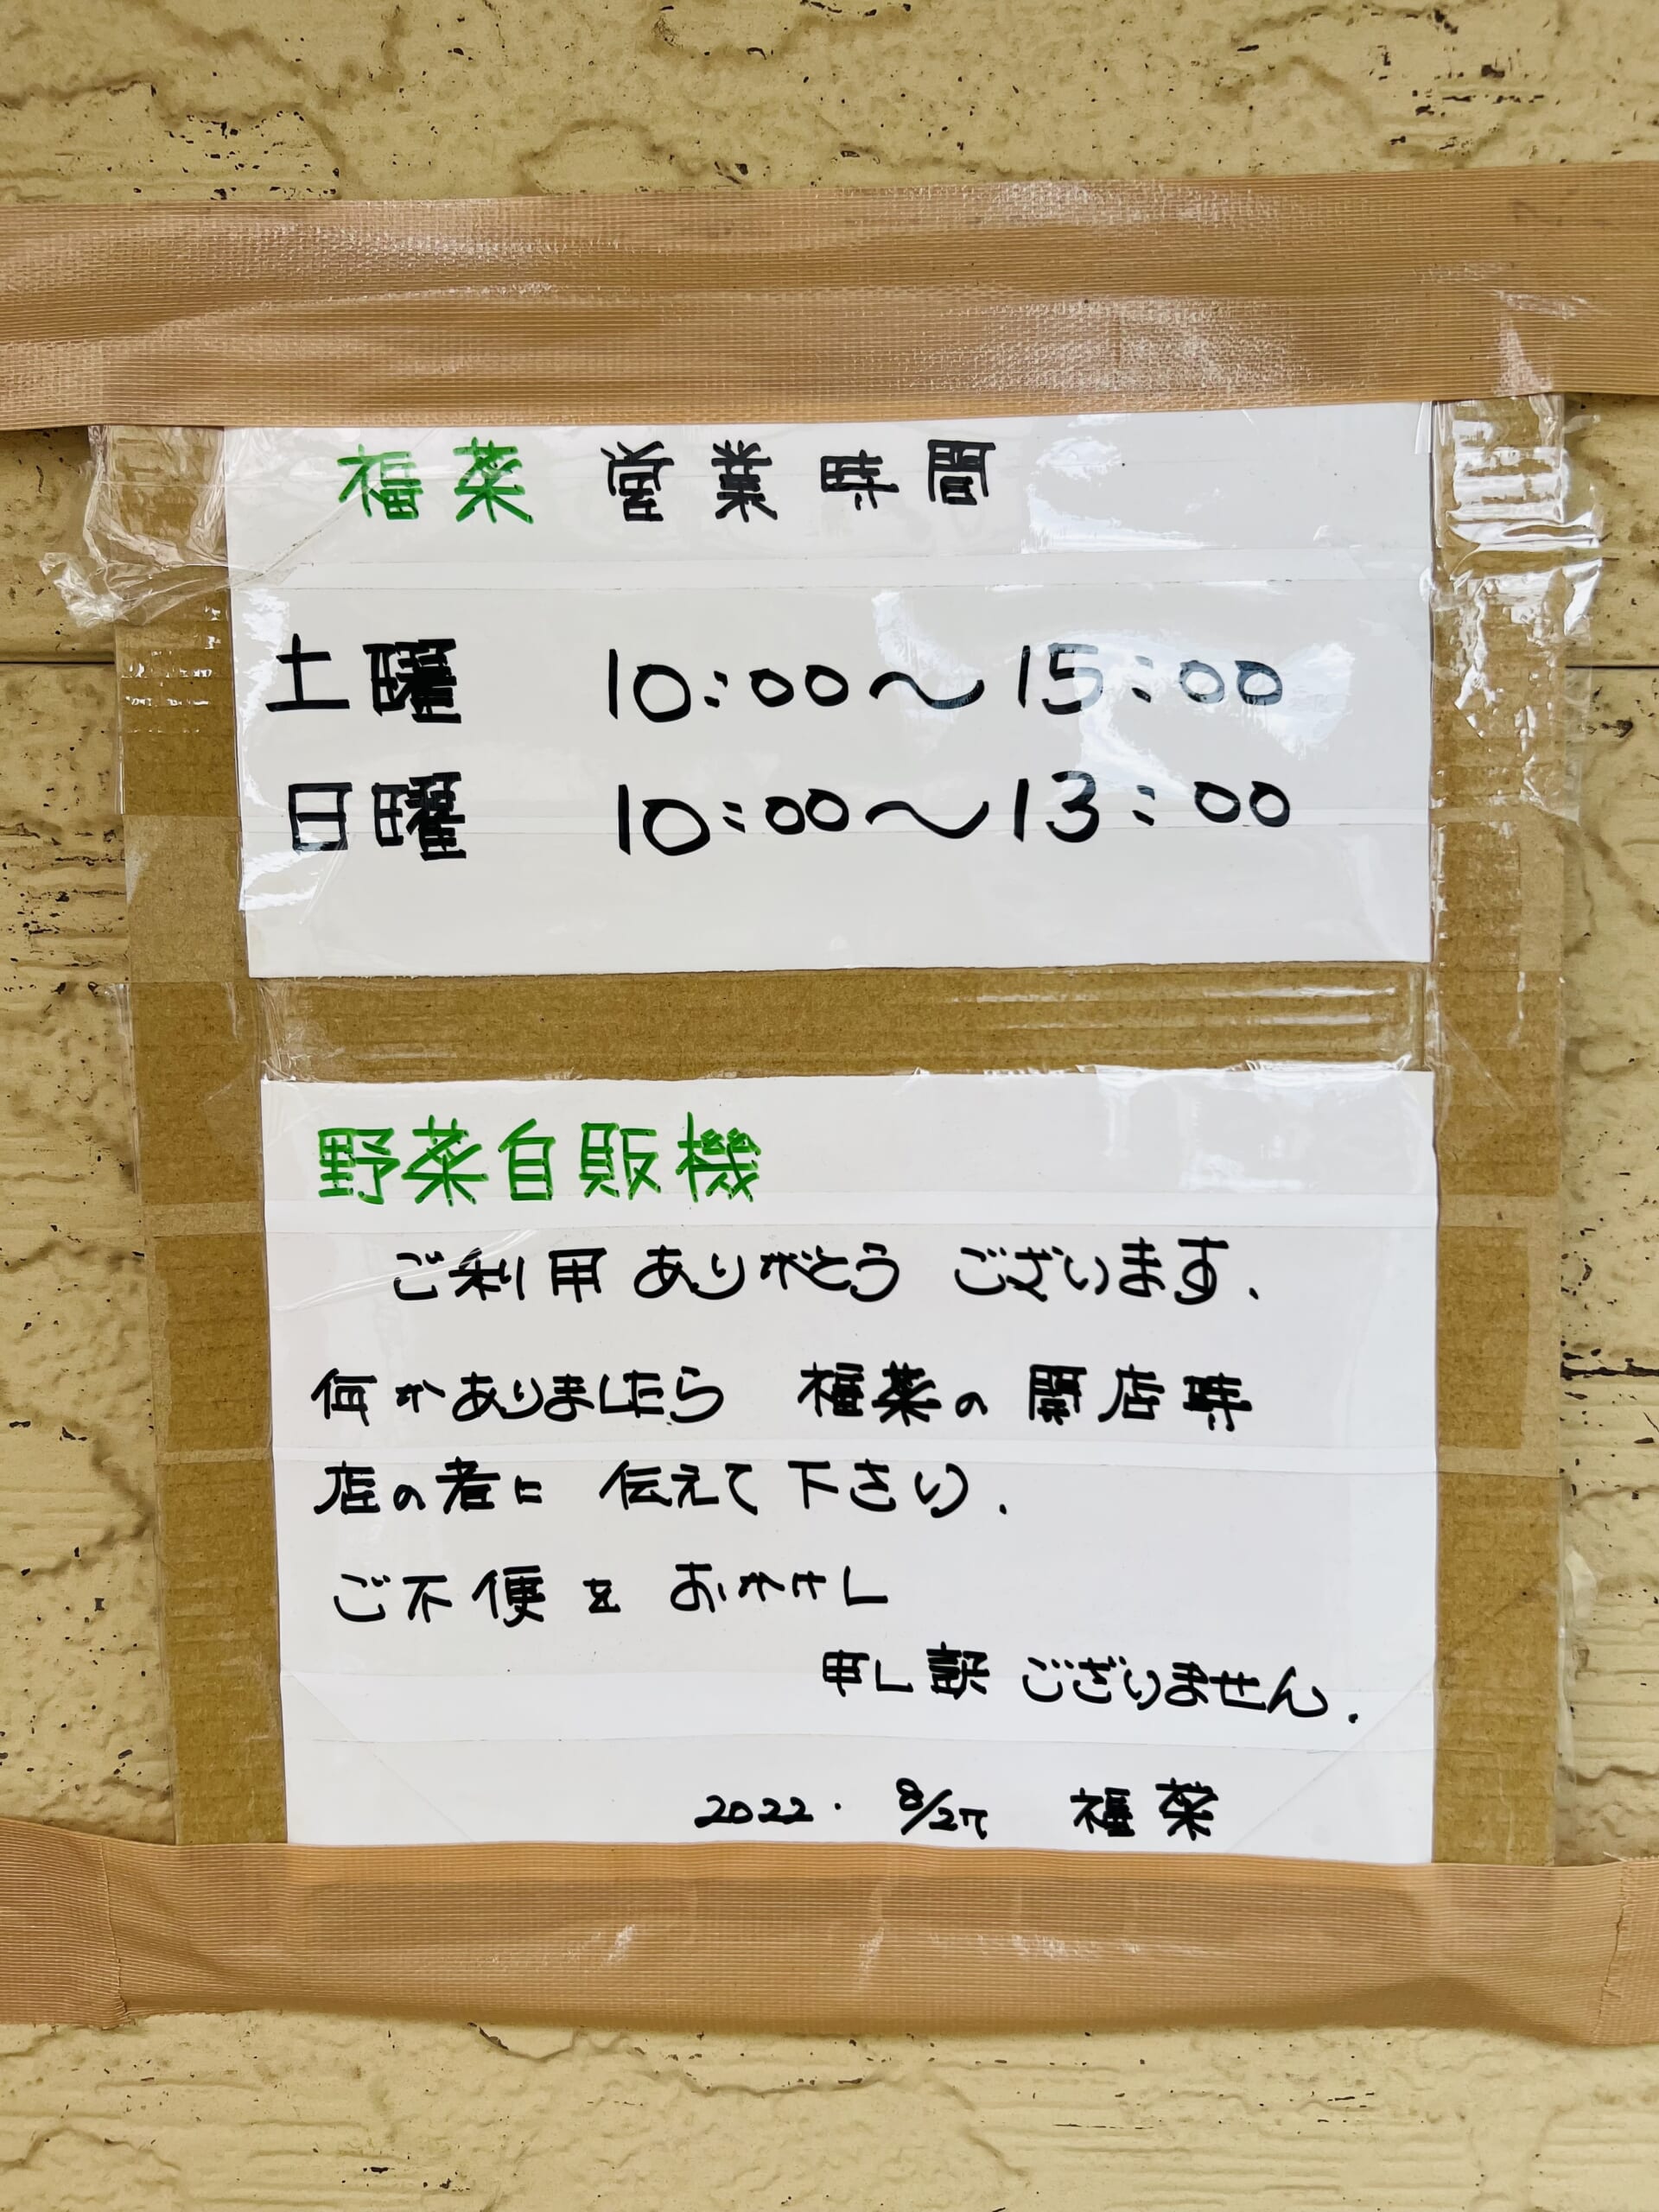 福菜 営業時間
土曜 10:00〜15:00
日曜 10:00〜13:00
野菜自販機
ご利用ありがとうございます.
何かありましたら 福菜の開店時
店の者に 伝えて下さい.
ご不便を おかけし
申し訳ございません.
2022. 8/27 福菜